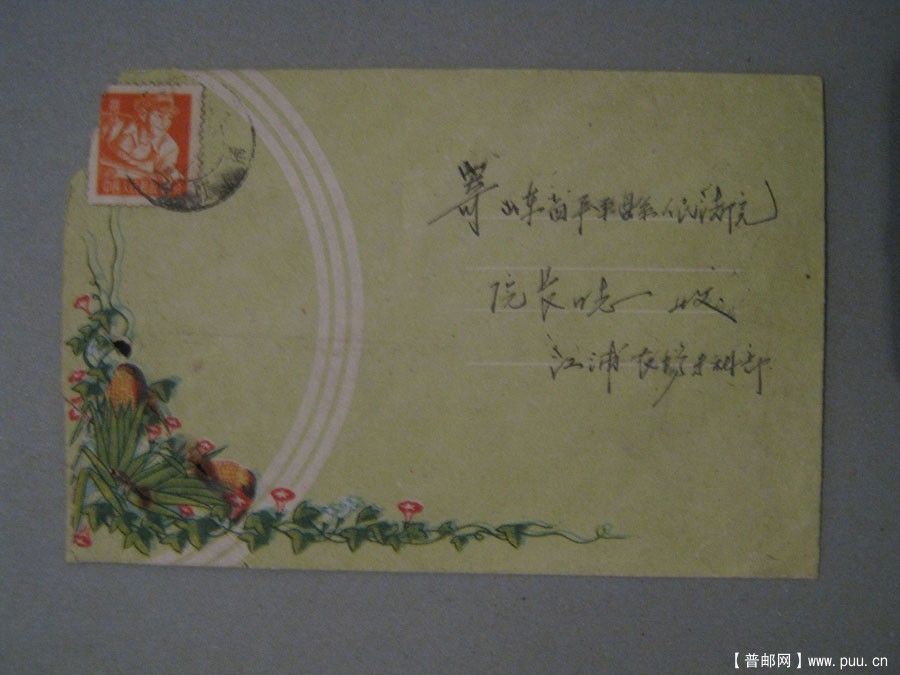 寄 山东省茌平县人民法院
院长同志 收
江浦农
【普邮网】www.puu.cn